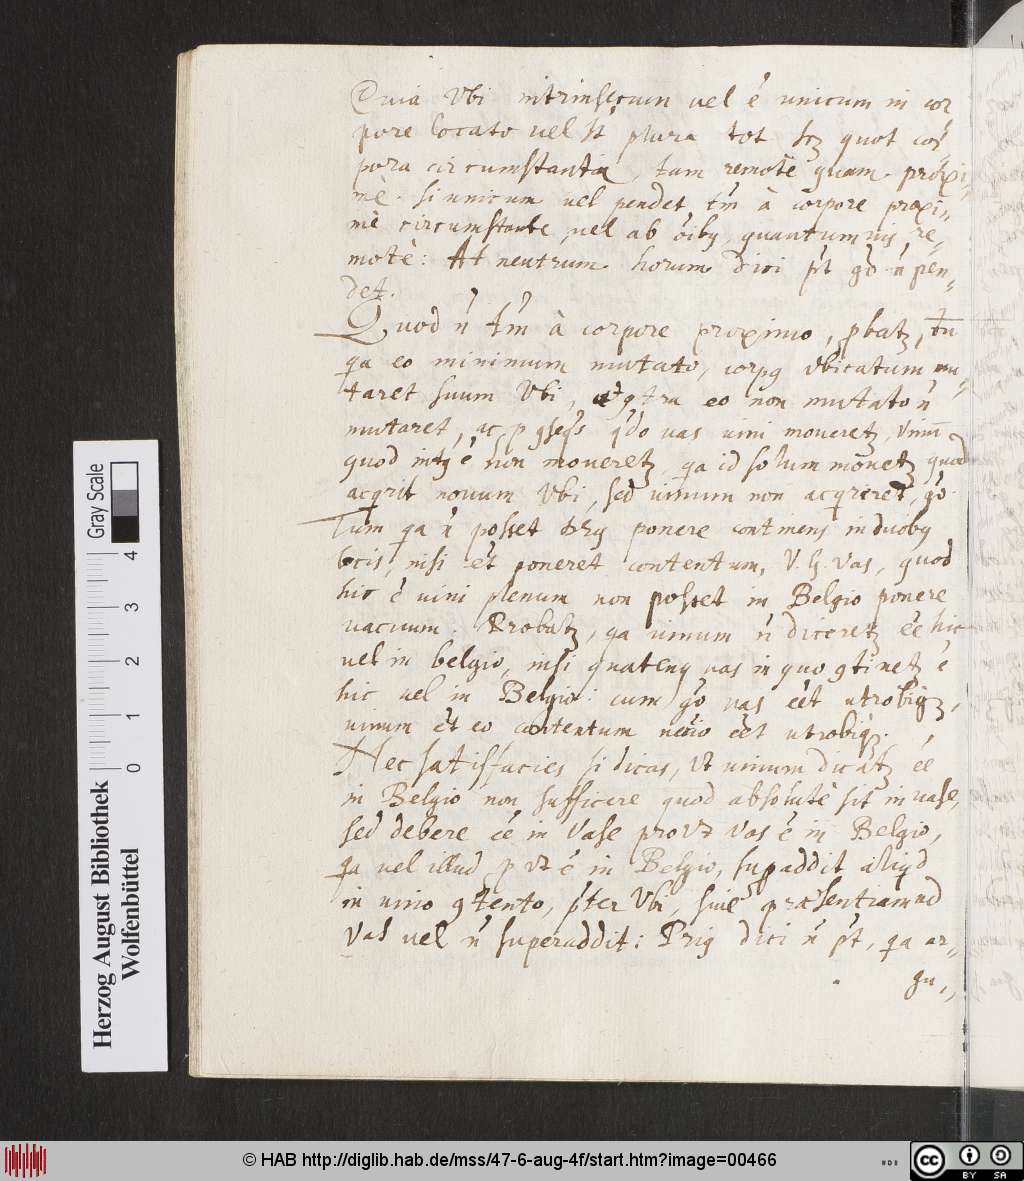 Quia Vbi intrinsecum vel ē unicum in cor
pore locato vel st̄ plura tot scꝫ quot cor
pora circumstantia, tam remotè quam proxi„
mè. si unicum vel pendet tm̄ à corpore proxi„
mè circumstante, vel ab oi͞bꝯ quantumvis re„
motè: At neutrum horum dici pt̄ gō n̄ pen„
det.
Quod n̄ tm̄ à corpore proximo, ꝓbatꝫ, tū
qa eo minimum mutato, corpꝯ Vbicatum mu„
taret suum Vbi, et ꝯtra eo non mutato n̄
mutaret, ac p ꝯseqs qdo vas vini moveretꝫ, vinū
quod intꝯ ē non moveretꝫ, qa id solum movetꝫ quod
acqrit novum Vbi, sed vinum non acqreret, gō.
Tum qa n̄ posset ponere continens in duobꝯ
locis, nisi et poneret contentum, V. G. vas, quod
hic ē vini plenum non posset in Belgio ponere
vacuum. Probatꝫ, qa vinum n̄ diceretꝫ ēe hic
vel in belgio, nisi quatenꝯ vas in quo ꝯtinetꝫ ē
hic vel in Belgio: cum gō vas ēet utrobiqꝫ,
vinum et eo contentum nērio ēet utrobiqꝫ.
Nec satisfacies si dicas, Vt vinum dicatꝫ ēe
in Belgio non sufficere quod absolutè sit in vase,
sed debere ēe in Vase prout vas ē in Belgio,
qa vel illud p vt ē in Belgio, supaddit aliqd
in vino ꝯtento, pt̄er Vbi, sive præsentiam ad
Vas vel n̄ superaddit: Priꝯ dici n̄ pt̄, qa ar„
gu„
Herzog August Bibliothek
Wolfenbüttel
0 1 2 3 4
Gray Scale
© HAB http://diglib.hab.de/mss/47-6-aug-4f/start.htm?image=00466
cc BY SA